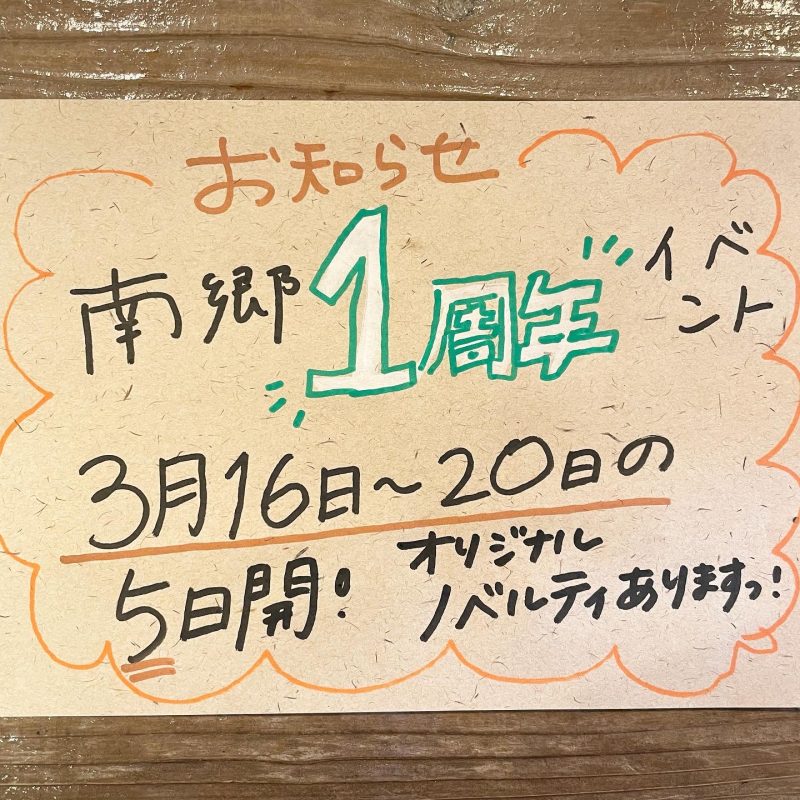 お知らせ
南郷1周年イベント
3月16日～20日の
5日開!
オリジナル
ノベルティありますっ!